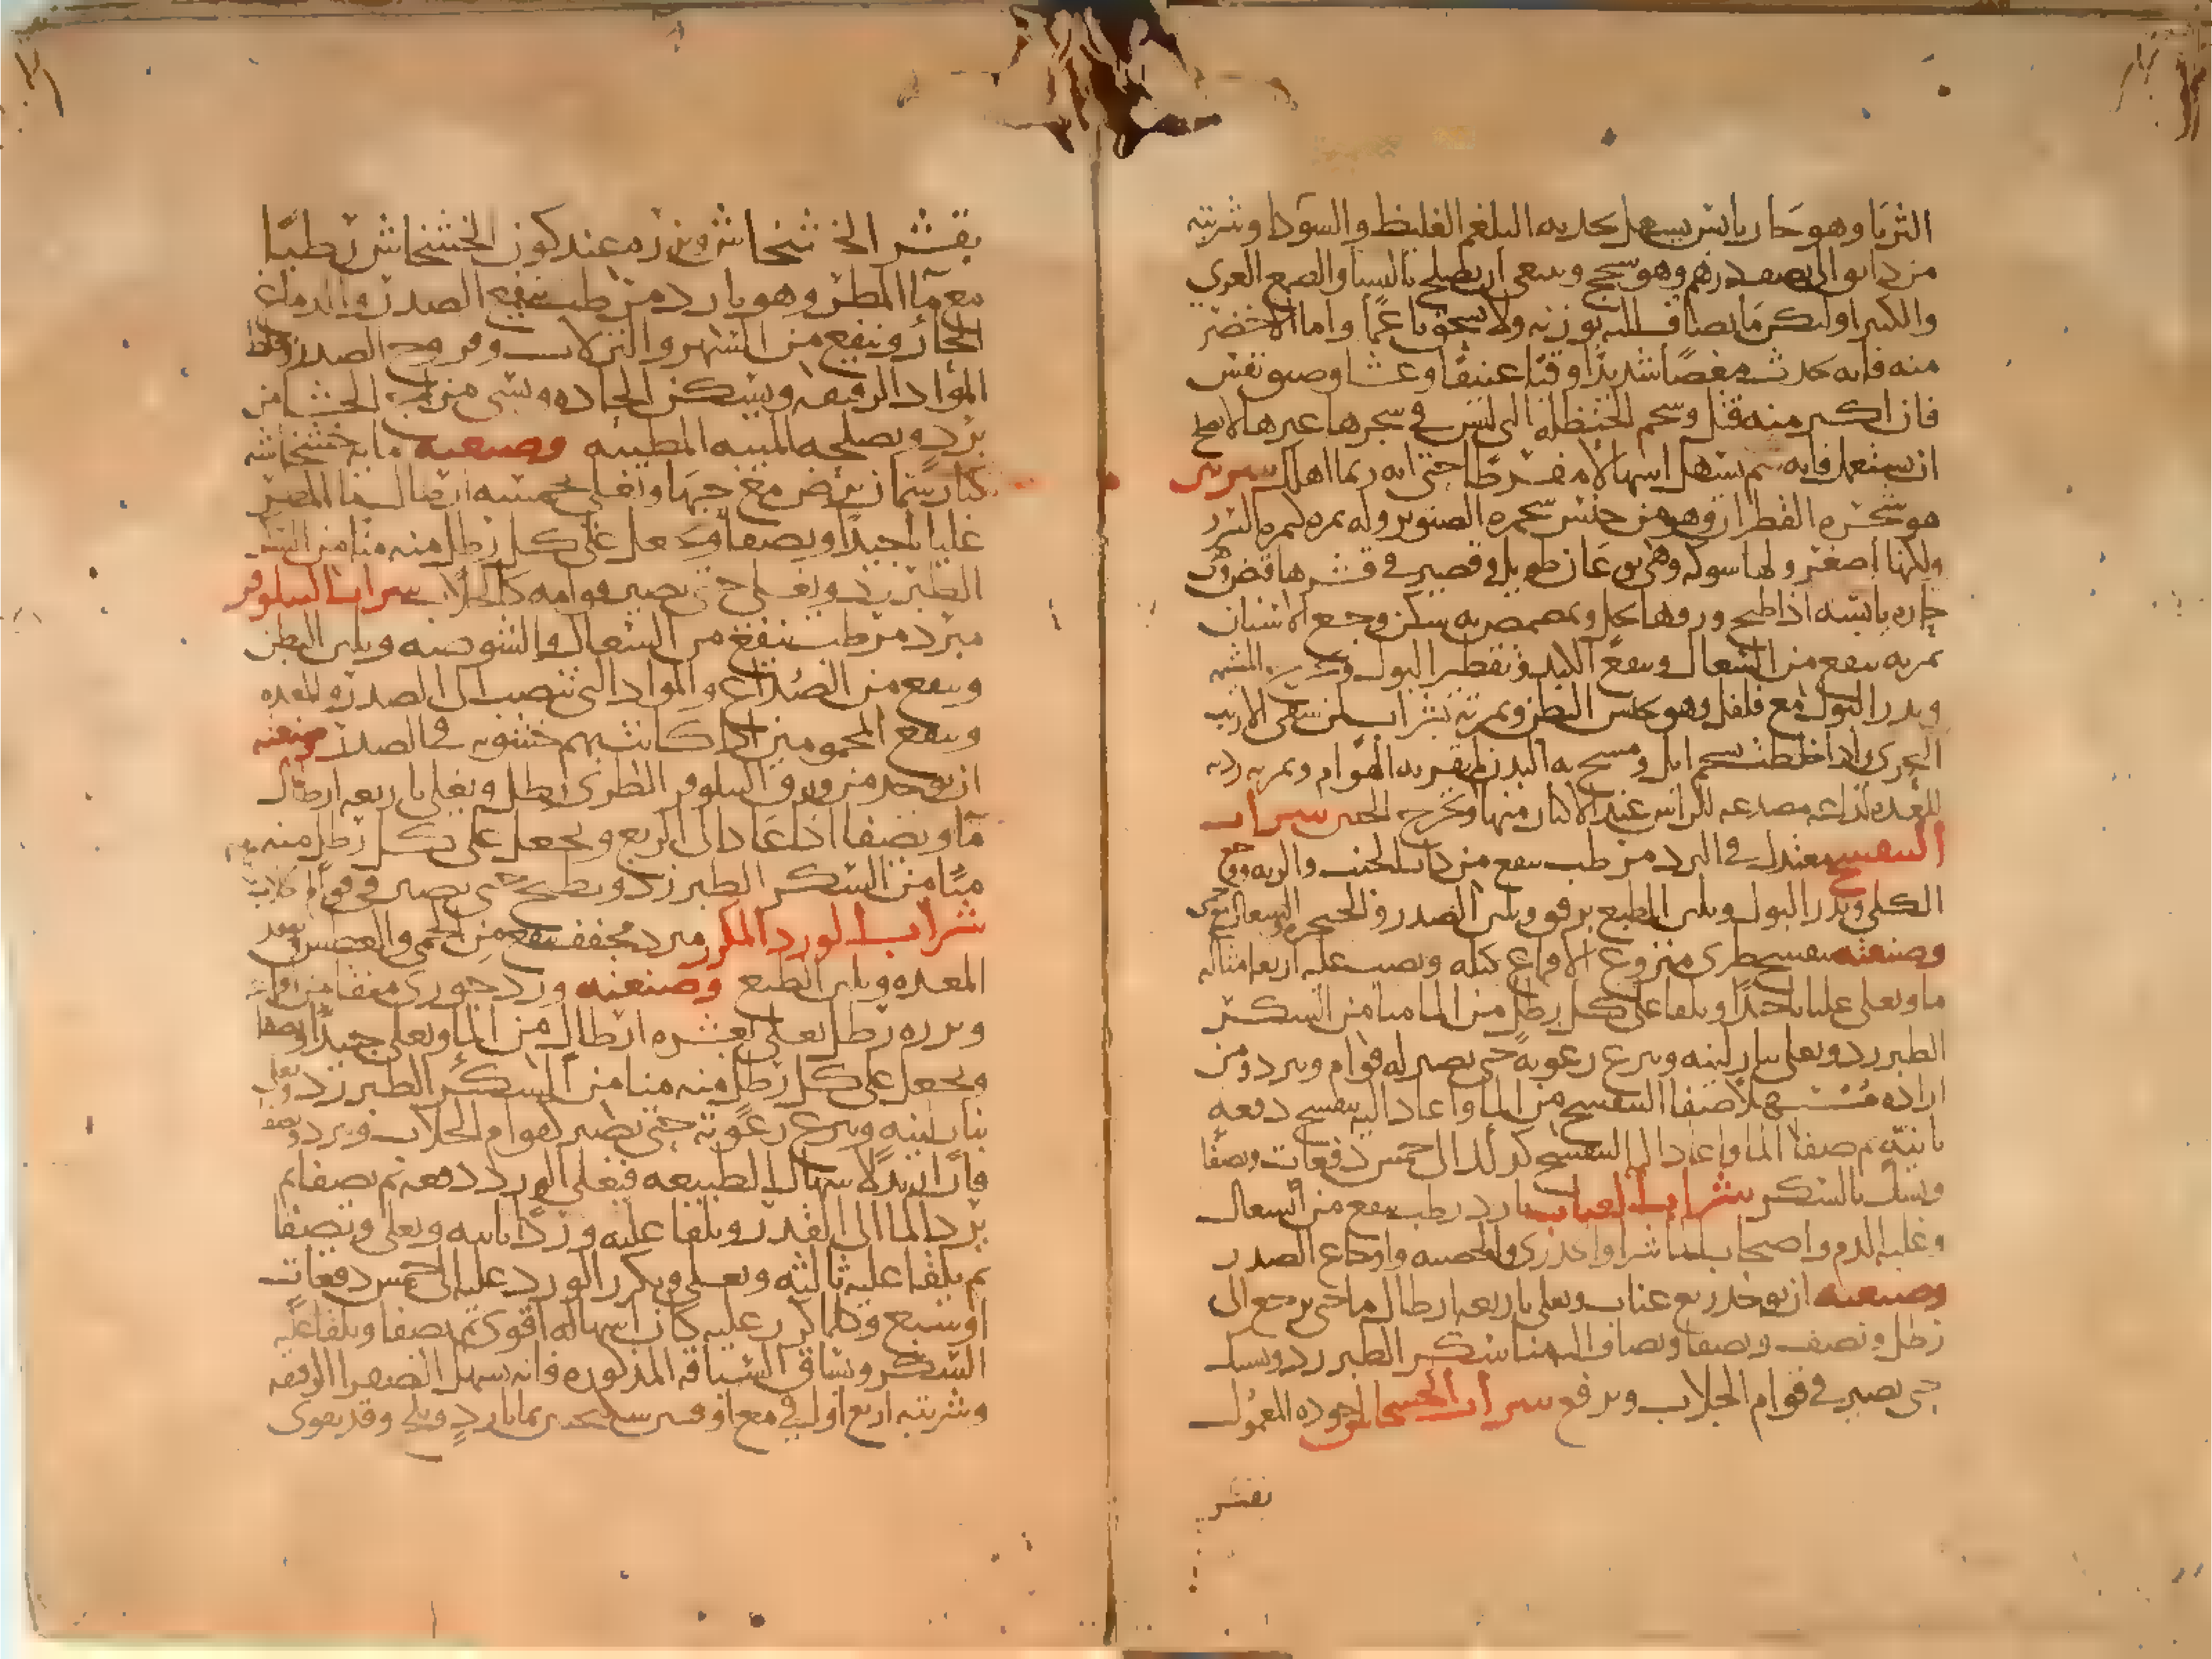 الثريا وهو حار يابس يسهل بحدته البلغم الغليظ والسودا وشربته
من دانق الى نصف درهم وهو سحج وينبغى ان يصلح بالنشا والصمغ العربى
والكثيرا وليكن ما يضاف اليه بوزنه ولا يسحق ناعما واما الاخضر
منه فانه يحدث مغصا شديدا وقيا عنيفا وغشيا وضيق نفس
فان اكثر منه قتل وشحم الحنظلة التى ليس فى شجرها غيرها لا يصلح
ان يستعمل فانه سم يسهل اسهالا مفرطا حتى انه ربما اهلك شربين
هو شجرة القطران وهو من جنس شجرة الصنوبر وله ثمرة كثمرة السرو
ولكنها اصغر ولها شوك وهى نوعان طويل وقصير فى قشرها قبض وهى
حارة يابسة اذا طبخ ورقها بخل وتمضمض به سكن وجع الاسنان
ثمرته ينفع من السعال وينفع الكبد وتقطير البول
ويدر البول مع فلفل وهو يحبس البطن وثمرته بشراب لمن سقى الارنب
البحرى واذا خلطت بشحم ايل ومسح به البدن لم يقربه الهوام وثمرته ردية
للمعدة لذاعة مصدعة للراس عند الاكثار منها وتخرج الجنين شراب
البنفسج معتدل فى البرد مرطب ينفع من ذات الجنب والرية ووجع
الكلى ويدر البول ويلين الطبع برفق ويلين الصدر والحنجرة
وصنعته بنفسج طرى منزوع الاقماع كيله ويصب عليه اربعة امثاله
ما ويغلى غليانا جيدا ويلقا على كل رطل من الما منا من السكر
الطبرزد ويغلى بنار لينة وينزع رغوته حتى يصير له قوام ويبرد ومن
اراده مسهلا صفا البنفسج من الما واعاد اليه بنفسج دفعة
ثانية ثم صفا الما واعاد اليه البنفسج كذلك الى خمس دفعات وصفا
ويسك بالسكر شراب العناب بارد رطب ينفع من السعال
وغلبة الدم واصحاب الماشرا والجدرى والحصبة واوجاع الصدر
وصنعته ان يوخذ ربع عناب ويغلى باربعة ارطال ما حتى يرجع الى
رطل ونصف ويصفا ويضاف اليه منا سكر الطبرزد
حتى يصير فى قوام الجلاب ويرفع شراب الخشخاش اجوده المعمول
بقشر
بقشر الخشخاش وبزره عند كون الخشخاش رطبا
مع ما المطر وهو بارد مرطب ينفع الصدر والدماغ
الحار وينفع من السهر والنزلات وقروح الصدر
المواد الرقيقة ويسكن الحادة
برد ويصلحه الميبة المطيبة وصنعته ماية خشخاشة
كبار سمان ترض مع حبها وتغلى بخمسة ارطال ما المطر
غليانا جيدا ويصفا ويجعل على كل رطل منه منا من السكر
الطبرزد ويغلى حتى يصير قوامه كالجلاب شراب النيلوفر
مبرد مرطب ينفع من السعال والشوصة ويلين البطن
وينفع من الصداع والمواد التى تنصب الى الصدر والمعدة
وينفع المحمومين اذا كانت بهم خشونة فى الصدر صنعته
ان يوخذ من ورق النيلوفر الطرى رطل ويغلى باربعة ارطال
ما ويصفا اذا عاد الى الربع ويجعل على كل رطل منه
منا من السكر الطبرزد ويطبخ حتى يصير فى قوام جلاب
شراب الورد المكرر مبرد مجفف ينفع من الحمى والعطش
المعدة ويلين الطبع وصنعته ورد جورى
وبزره رطل يغلى بعشرة ارطال من الما ويغلى جيدا
ويجعل على كل رطل منه منا من السكر الطبرزد
بنار لينة وينزع رغوته حتى يصير كقوام الجلاب ويبرد
فان اريد لاسهال الطبيعة فيغلى الورد دفعة ثم يصفا ثم
يرد الما الى القدر ويلقا عليه ورد ثانية ويغلى ويصفا
ثم يلقا عليه ثالثة ويغلى ويكرر الورد عليه الى خمس دفعات
او سبع وكلما كرر عليه كان اسهاله اقوى ثم يصفا ويلقا عليه
السكر ويساق السياقة المذكورة فانه يسهل الصفرا الرقيقة
وشربته اربع اواقى مع بما بارد وثلج وقد يقوى